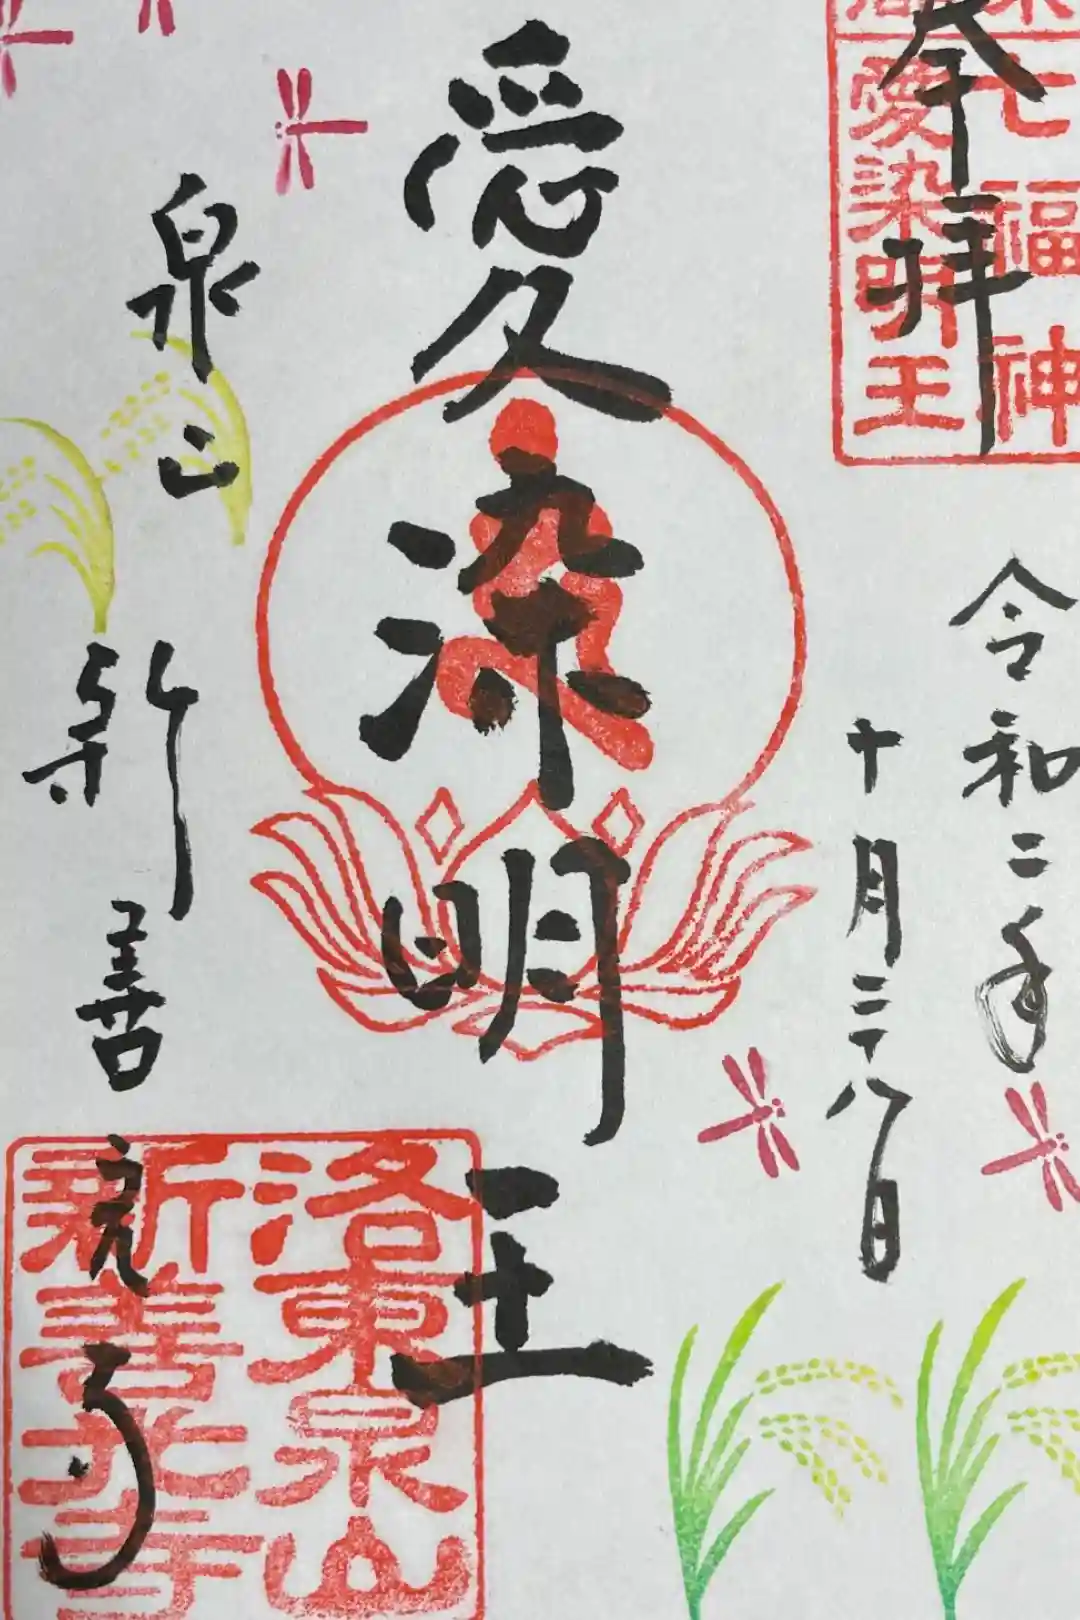 奉拝
七福神
愛染明王
令和二年
十月二十八日
愛染明王
泉山
新善光寺
洛東泉山
新善光寺